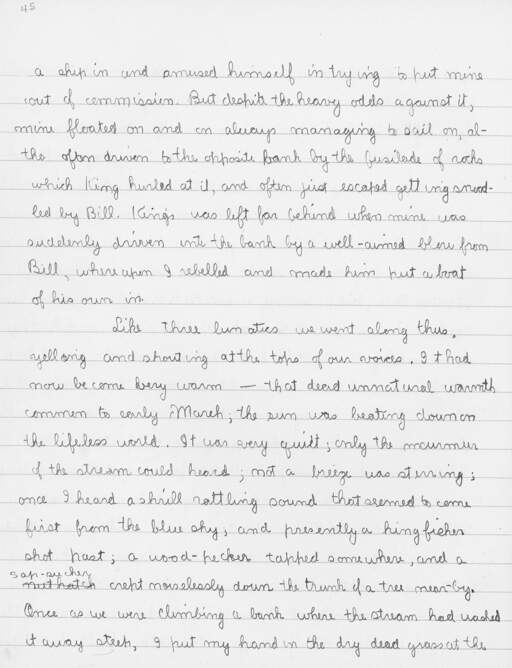 45
a ship in and amused himself in trying to put mine
out of commission. But despite the heavy odds against it,
mine floated on and on always managing to sail on, al-
tho often driven to the opposite bank by the fusilade of rocks
which King hurled at it, and often just escaped getting
led by Bill. King's was left far behind when mine was
suddenly driven into the bank by a well-aimed blow from
Bill, whereupon I rebelled and made him put a boat
of his own in.
Like three lunatics we went along thus,
yelling and shouting at the tops of our voices. It had
now become very warm — that dead unnatural warmth
common to early March; the sun was beating down on
the lifeless world. It was very quiet; only the murmur
of the stream could heard; not a breeze was stirring;
once I heard a shrill rattling sound that seemed to come
first from the blue sky, and presently a kingfisher
shot past; a wood-pecker tapped somewhere, and a
sap-sucker
nuthatch crept noiselessly down the trunk of a tree near-by.
Once as we were climbing a bank where the stream had washed
it away steep, I put my hand in the dry dead grass at the